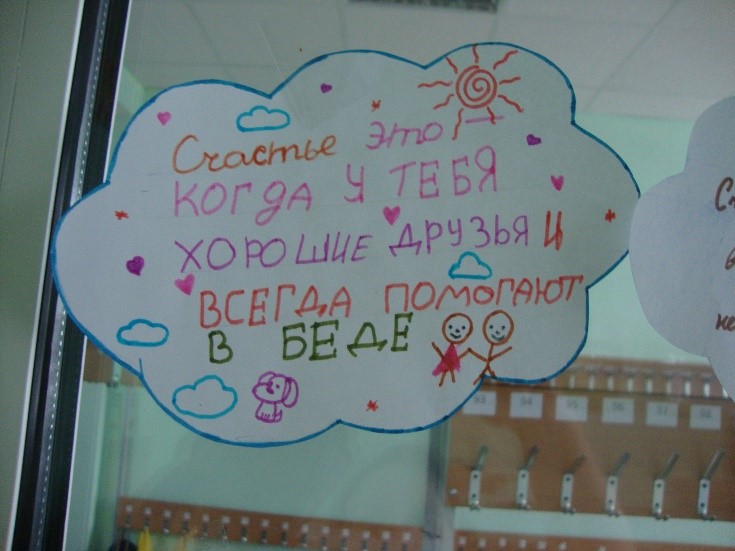 Счастье это
КОГДА У ТЕБЯ
ХОРОШИЕ ДРУЗЬЯ И
ВСЕГДА ПОМОГАЮТ
В БЕДЕ
93
94
95
96
97
98